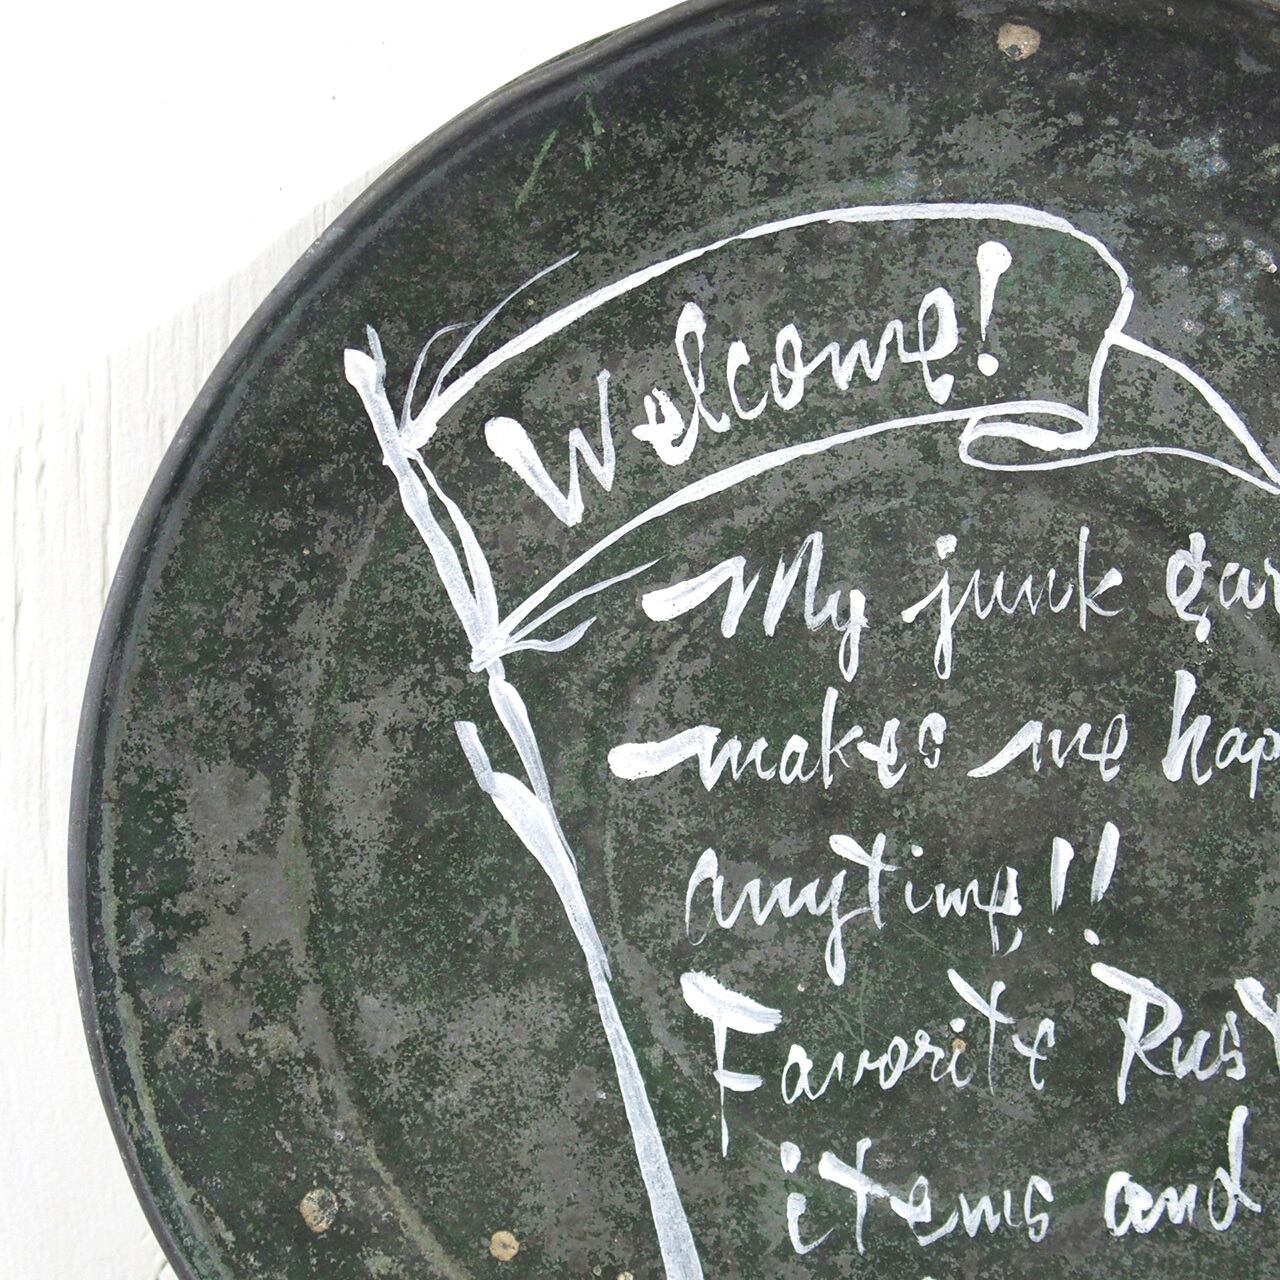 Welcome!
My junk gar
makes me hap
anytime!!
Favorite Rust
items and